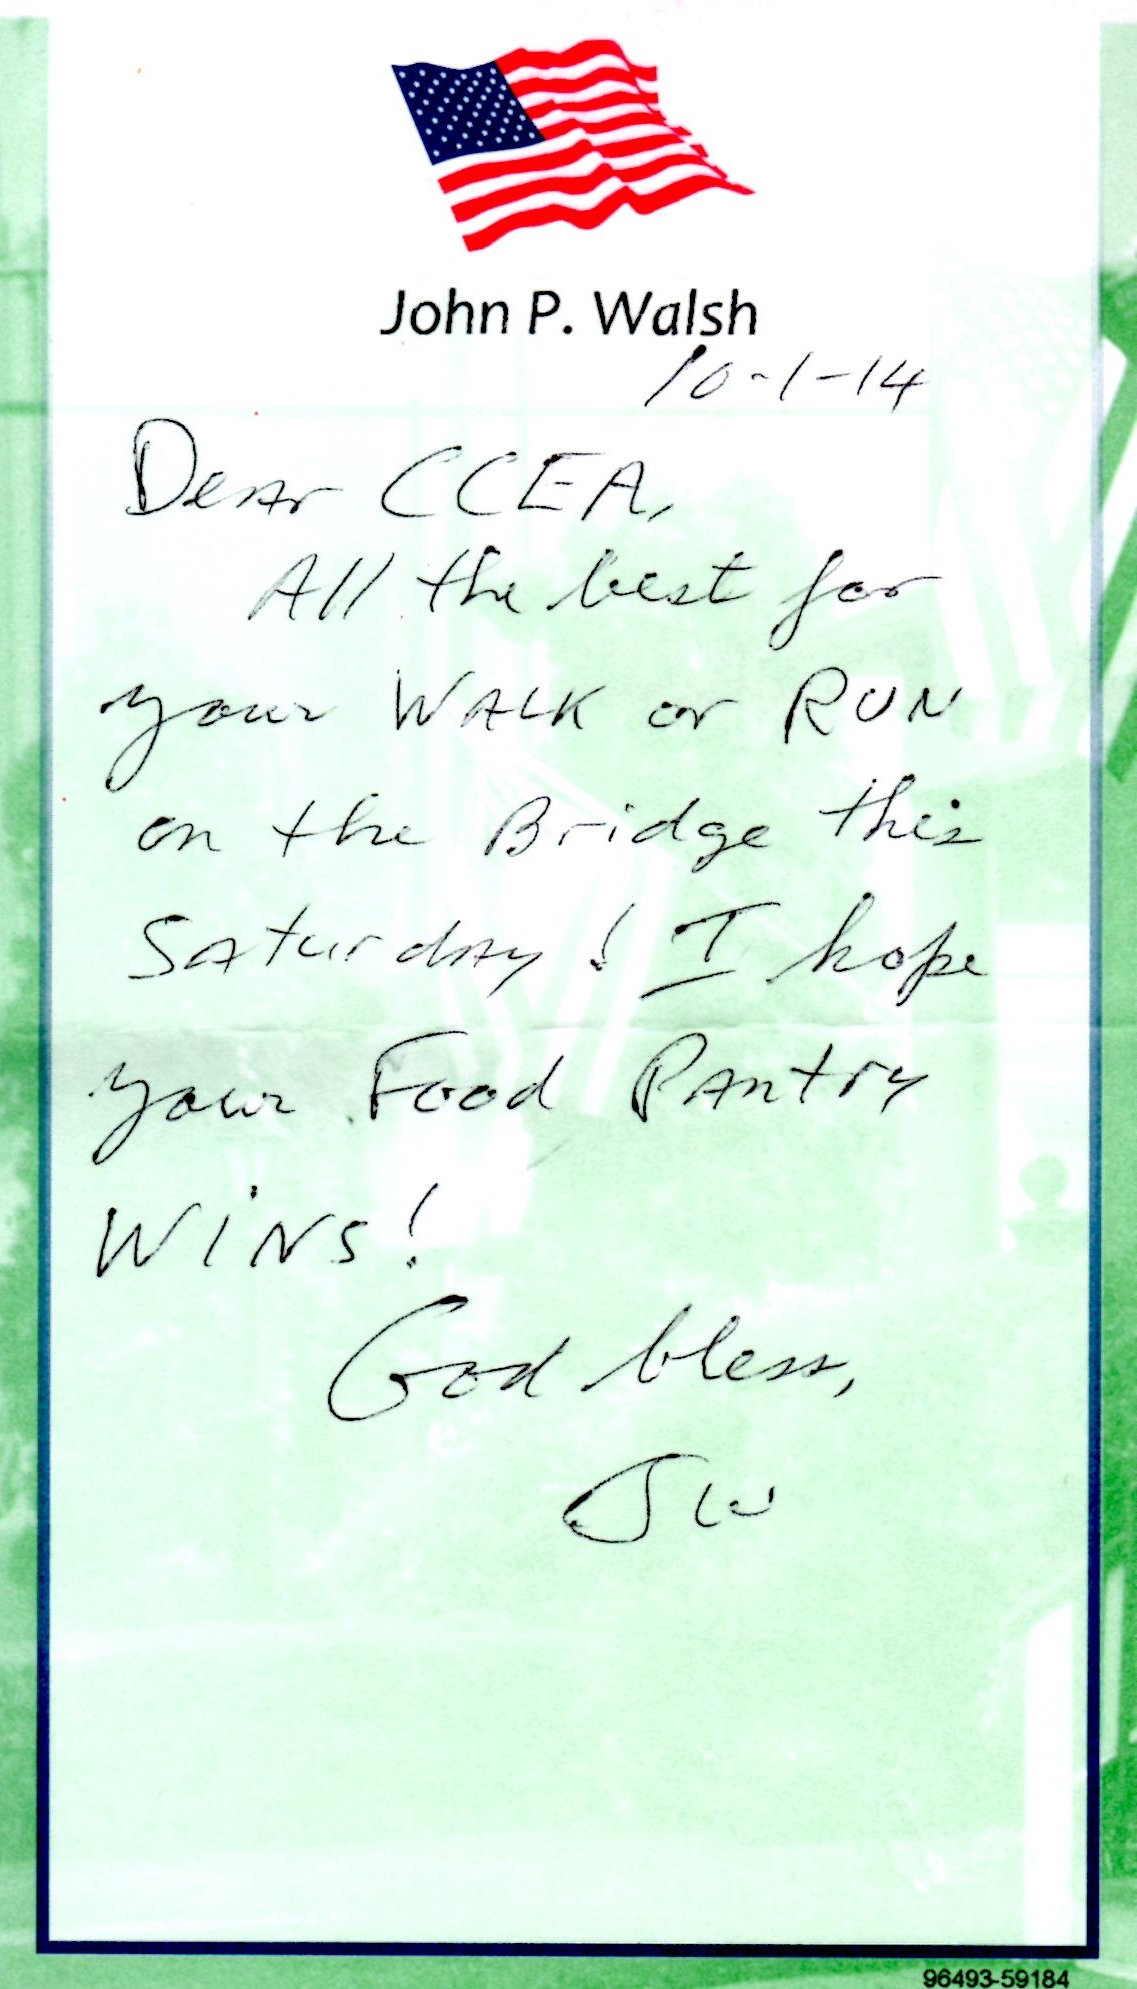 John P. Walsh
10-1-14
Dear CCEA,
All the best for
your WALK or RUN
on the Bridge this
Saturday! I hope
your Food Pantry
WINS!
God bless,
JW
96493-59184